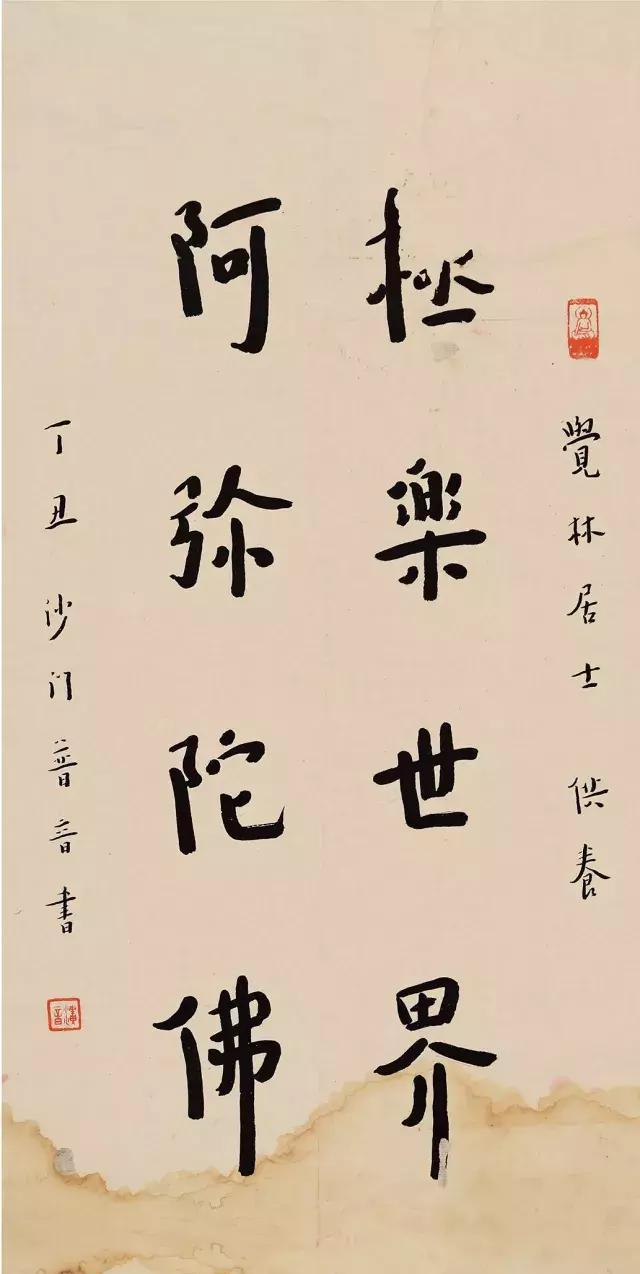 覺林居士 供養
極樂世界
阿弥陀佛
丁丑 沙門普音書